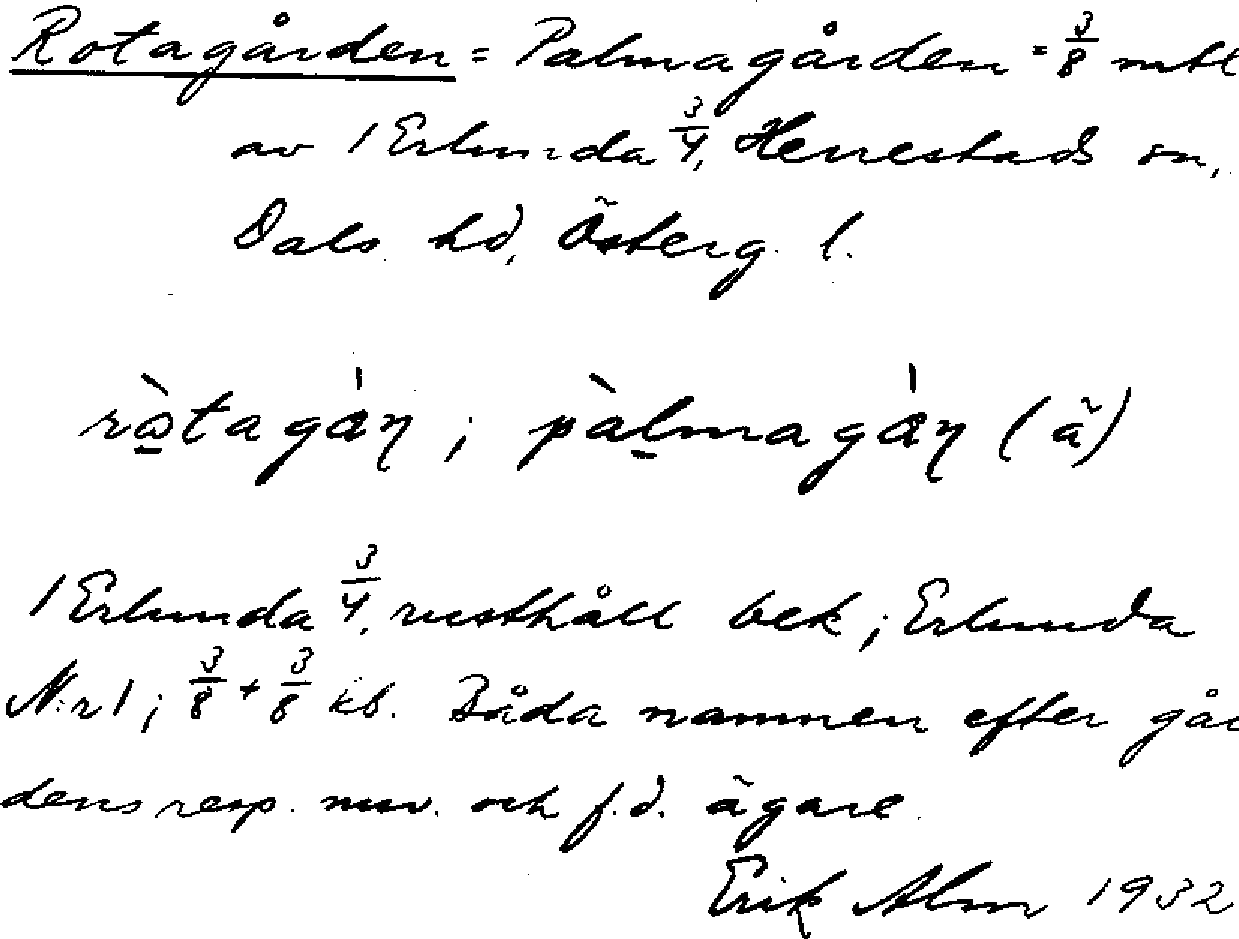 Rotagården = Palmagården = 3/8 mtl
av 1 Erlunda 3/4, Herrestads sn,
Dals hd, Österg. l.
ròtagán ; pàlmagán (ä)
1 Erlunda 3/4, rusthåll bek ; Erlunda
N:r 1 ; 3/8 + 3/8 kb. Båda namnen efter går
dens resp. nuv. och f.d. ägare.
Erik Alm 1932